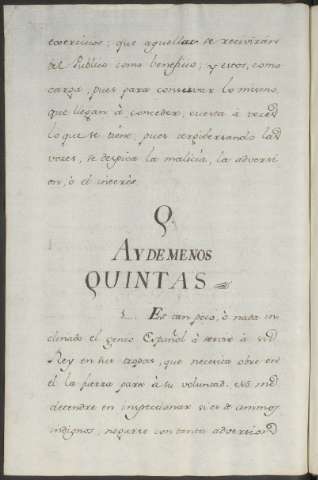 exercicios; que aquellas se recivirán
del Publico como beneficio; y estos, como
carga, pues para conservar lo mismo,
que llegan à conceder, cuesta à veces
lo que se tiene; pues
voces, se despica la malicia, la adversi
on, ò el interés.
Q.
AY DE MENOS
QUINTAS
1.... Es tan poco, ò nada in
clinado el genio Español à servir à su
Rey en sus tropas, que necesita obre en
el la fuerza para su voluntad. No me
detendre en inspeccionar si es de animos
indignos, negarse con tanta adversion